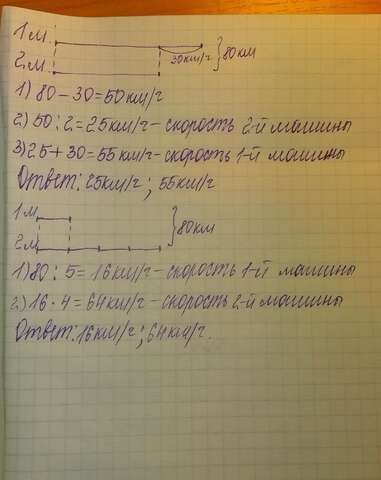 1 м.
30км/г } 80км
2 м.
1) 80 – 30 = 50км/г
2) 50 : 2 = 25км/г – скорость 2-й машины
3) 25 + 30 = 55 км/г – скорость 1-й машины
Ответ: 25км/г ; 55км/г
1 м.
} 80км
2 м.
1) 80 : 5 = 16км/г – скорость 1-й машины
2) 16 · 4 = 64км/г – скорость 2-й машины
Ответ: 16 км/г ; 64км/г.